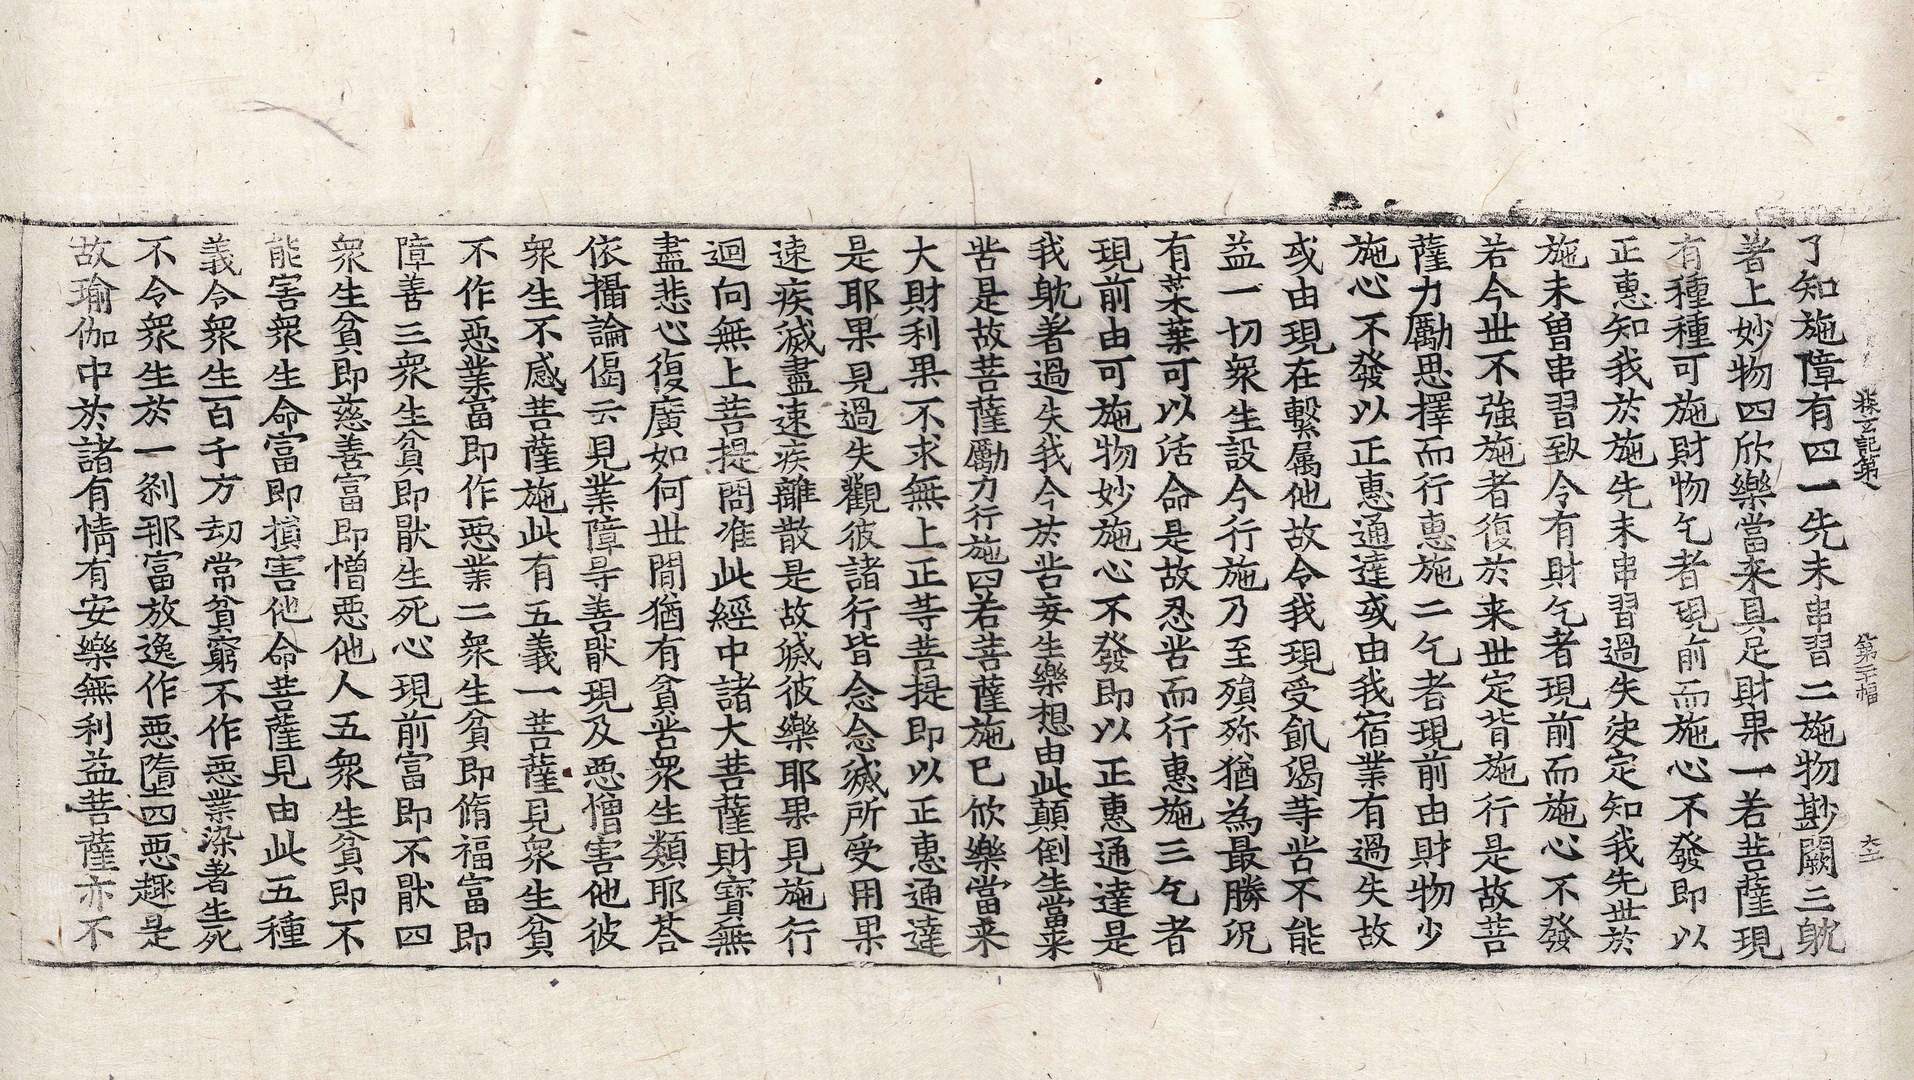 採玄記第八　第二十幅　大二
了知施障有四一先未串習二施物尠闕三躭
著上妙物四欣樂當来具足財果一若菩薩現
有種種可施財物乞者現前而施心不發即以
正惠知我於施先未串習過失决定知我先世於
施未曾串習致令有財乞者現前而施心不發
若今世不強施者復於来世定背施行是故菩
薩力勵思擇而行惠施二乞者現前由財物少
施心不發以正惠通達或由我宿業有過失故
或由現在繫属他故令我現受飢渴等苦不能
益一切衆生設今行施乃至殞殁猶為最勝况
有菜葉可以活命是故忍苦而行惠施三乞者
現前由可施物妙施心不發即以正惠通達是
我躭著過失我今於苦妄生樂想由此顛倒生當来
苦是故菩薩勵力行施四若菩薩施已欣樂當来
大財利果不求無上正等菩提即以正惠通達
是耶果見過失觀彼諸行皆念念滅所受用果
速疾滅盡速疾離散是故滅彼樂耶果見施行
迴向無上菩提問准此經中諸大菩薩財寶無
盡悲心復廣如何世間猶有貧苦衆生類耶荅
依攝論偈云見業障㝵善猒現及惡憎害他彼
衆生不感菩薩施此有五義一菩薩見衆生貧
不作惡業富即作惡業二衆生貧即脩福富即
障善三衆生貧即猒生死心現前富即不猒四
衆生貧即慈善富即憎惡他人五衆生貧即不
能害衆生命富即損害他命菩薩見由此五種
義令衆生百千方劫常貧窮不作惡業染著生死
不令衆生於一刹那富放逸作惡墮四惡趣是
故瑜伽中於諸有情有安樂無利益菩薩亦不